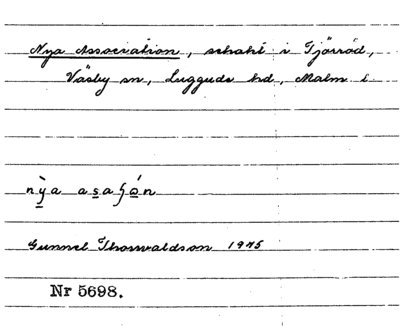 Nya Association, schakt i Tjörröd,
Väsby sn, Luggude hd, Malm l.
Gunnel Thorwaldson 1975
Nr 5698.